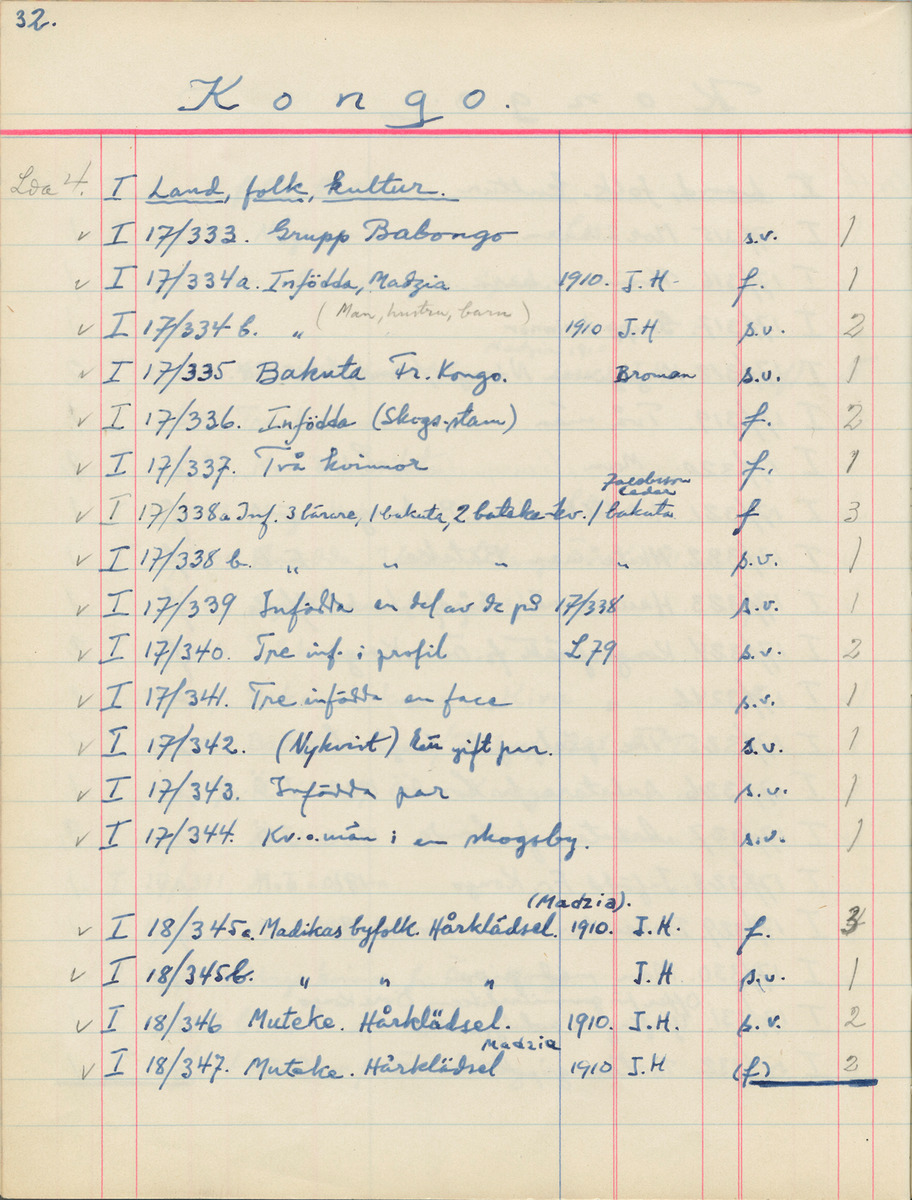 32.
Kongo.
Lda 4. I Land, folk, kultur.
v I 17/333. Grupp Babongo s.v. 1
v I 17/334a. Infödda, Madzia 1910. J.H. f. 1
(Man, hustru, barn)
v I 17/334 b. " 1910 J.H s.v. 2
v I 17/335 Bakuta Fr. Kongo. Broman s.v. 1
v I 17/336. Infödda (Skogs-stam) f. 2
v I 17/337. Två kvinnor f. 1
Jacobsson
Cedar
v I 17/338a Inf. 3 bärare, 1 bakuta, 2 bateke-kv. 1 bakuta f 3
v I 17/338 b. " " " " s.v. 1
v I 17/339 Infödda en del av de på 17/338 s.v. 1
v I 17/340. Tre inf. i profil L79 s.v. 2
v I 17/341. Tre infödda en face s.v. 1
v I 17/342. (Nykvist) gift par. s.v. 1
v I 17/343. Infödda par s.v. 1
v I 17/344. Kv. o. män i en skogsby. s.v. 1
(Madzia).
v I 18/345a. Madikas byfolk. Hårklädsel. 1910. J.H. f. 3
v I 18/345b. " " " J.H. s.v. 1
v I 18/346 Muteke. Hårklädsel. 1910. J.H. s.v. 2
Madzia
v I 18/347. Muteke. Hårklädsel 1910 J.H (f) 2